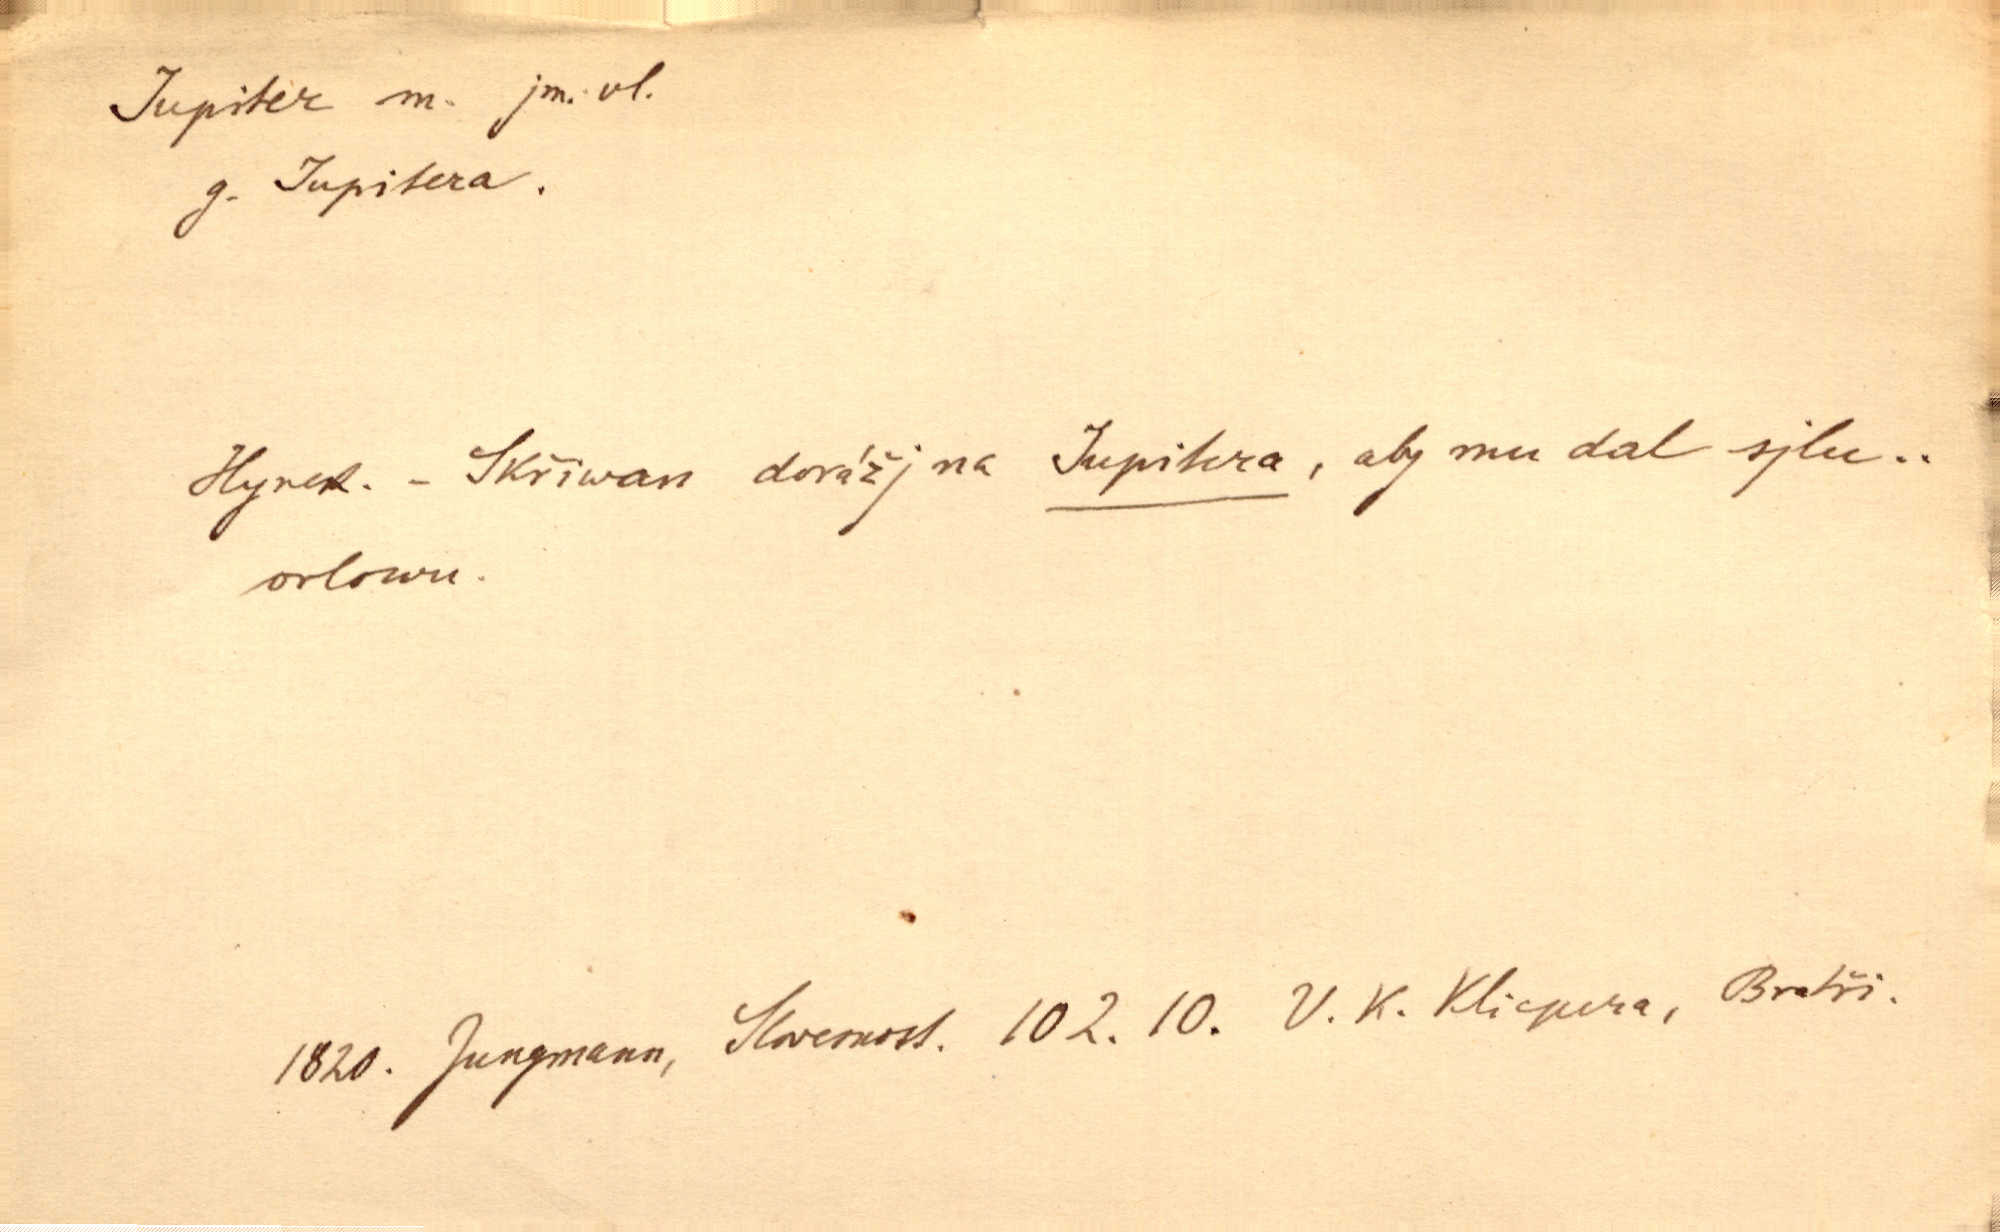 Jupiter m. jm. vl.
g. Jupitera.
Hynek. - Skřiwan dorážj na Jupitera, aby mu dal sjlu..
orlowu.
1820. Jungmann, Slovesnost. 102. 10. V. K. Klicpera, Bratři.